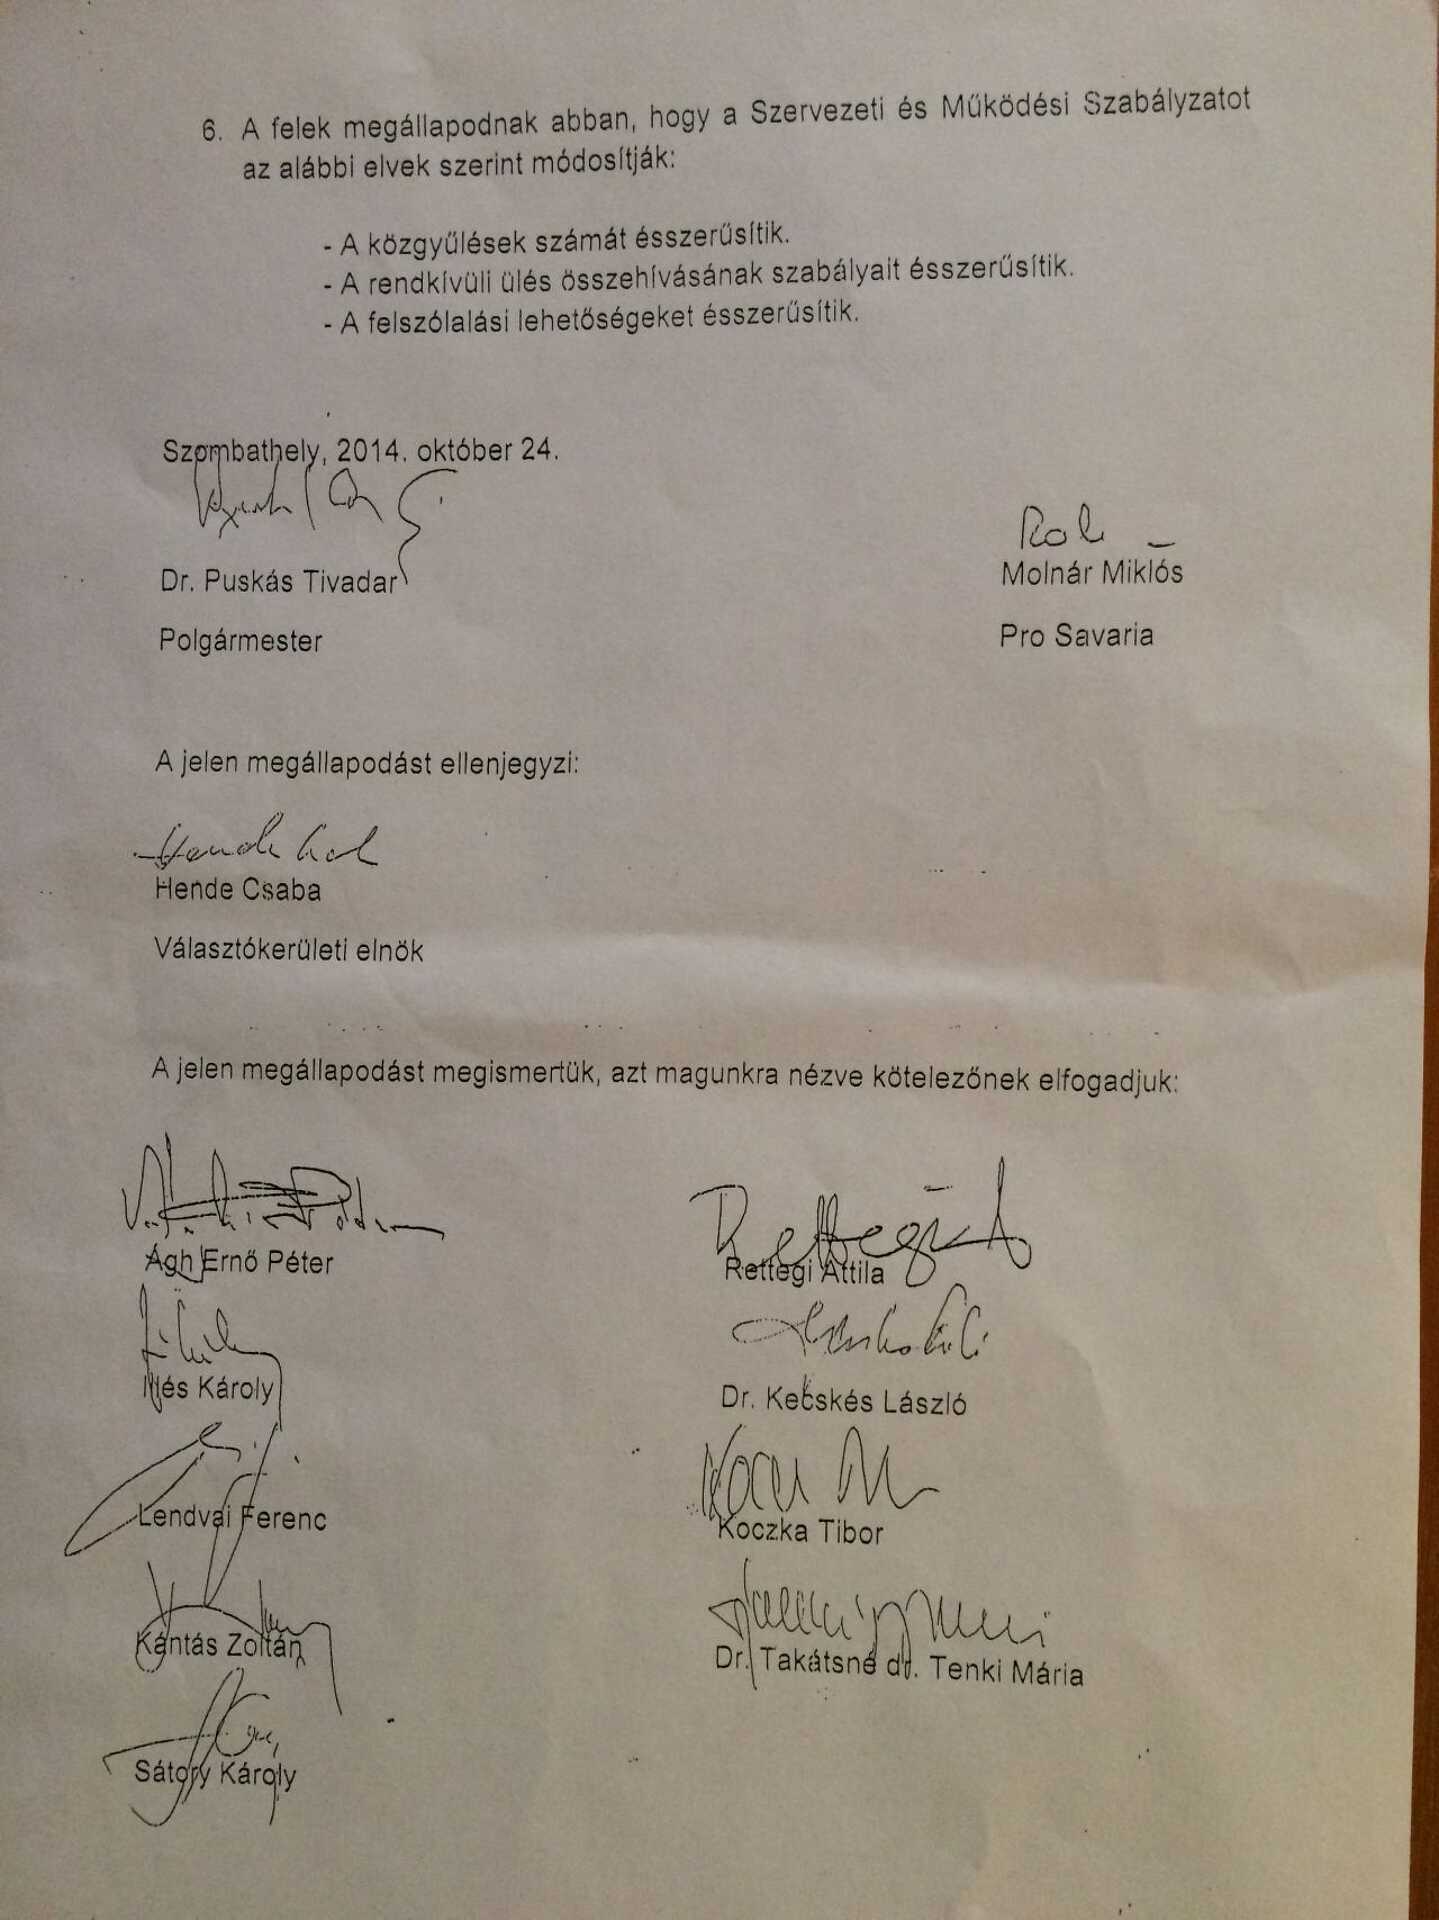 6. A felek megállapodnak abban, hogy a Szervezeti és Működési Szabályzatot
az alábbi elvek szerint módosítják:
- A közgyűlések számát ésszerűsítik.
- A rendkívüli ülés összehívásának szabályait ésszerűsítik.
- A felszólalási lehetőségeket ésszerűsítik.
Szombathely, 2014. október 24.
Dr. Puskás Tivadar
Molnár Miklós
Polgármester
Pro Savaria
A jelen megállapodást ellenjegyzi:
Hende Csaba
Választókerületi elnök
A jelen megállapodást megismertük, azt magunkra nézve kötelezőnek elfogadjuk:
Ágh Ernő Péter
Rettegi Attila
Illés Károly
Dr. Kecskés László
Lendvai Ferenc
Koczka Tibor
Kántás Zoltán
Dr. Takátsné dr. Tenki Mária
Sátory Károly